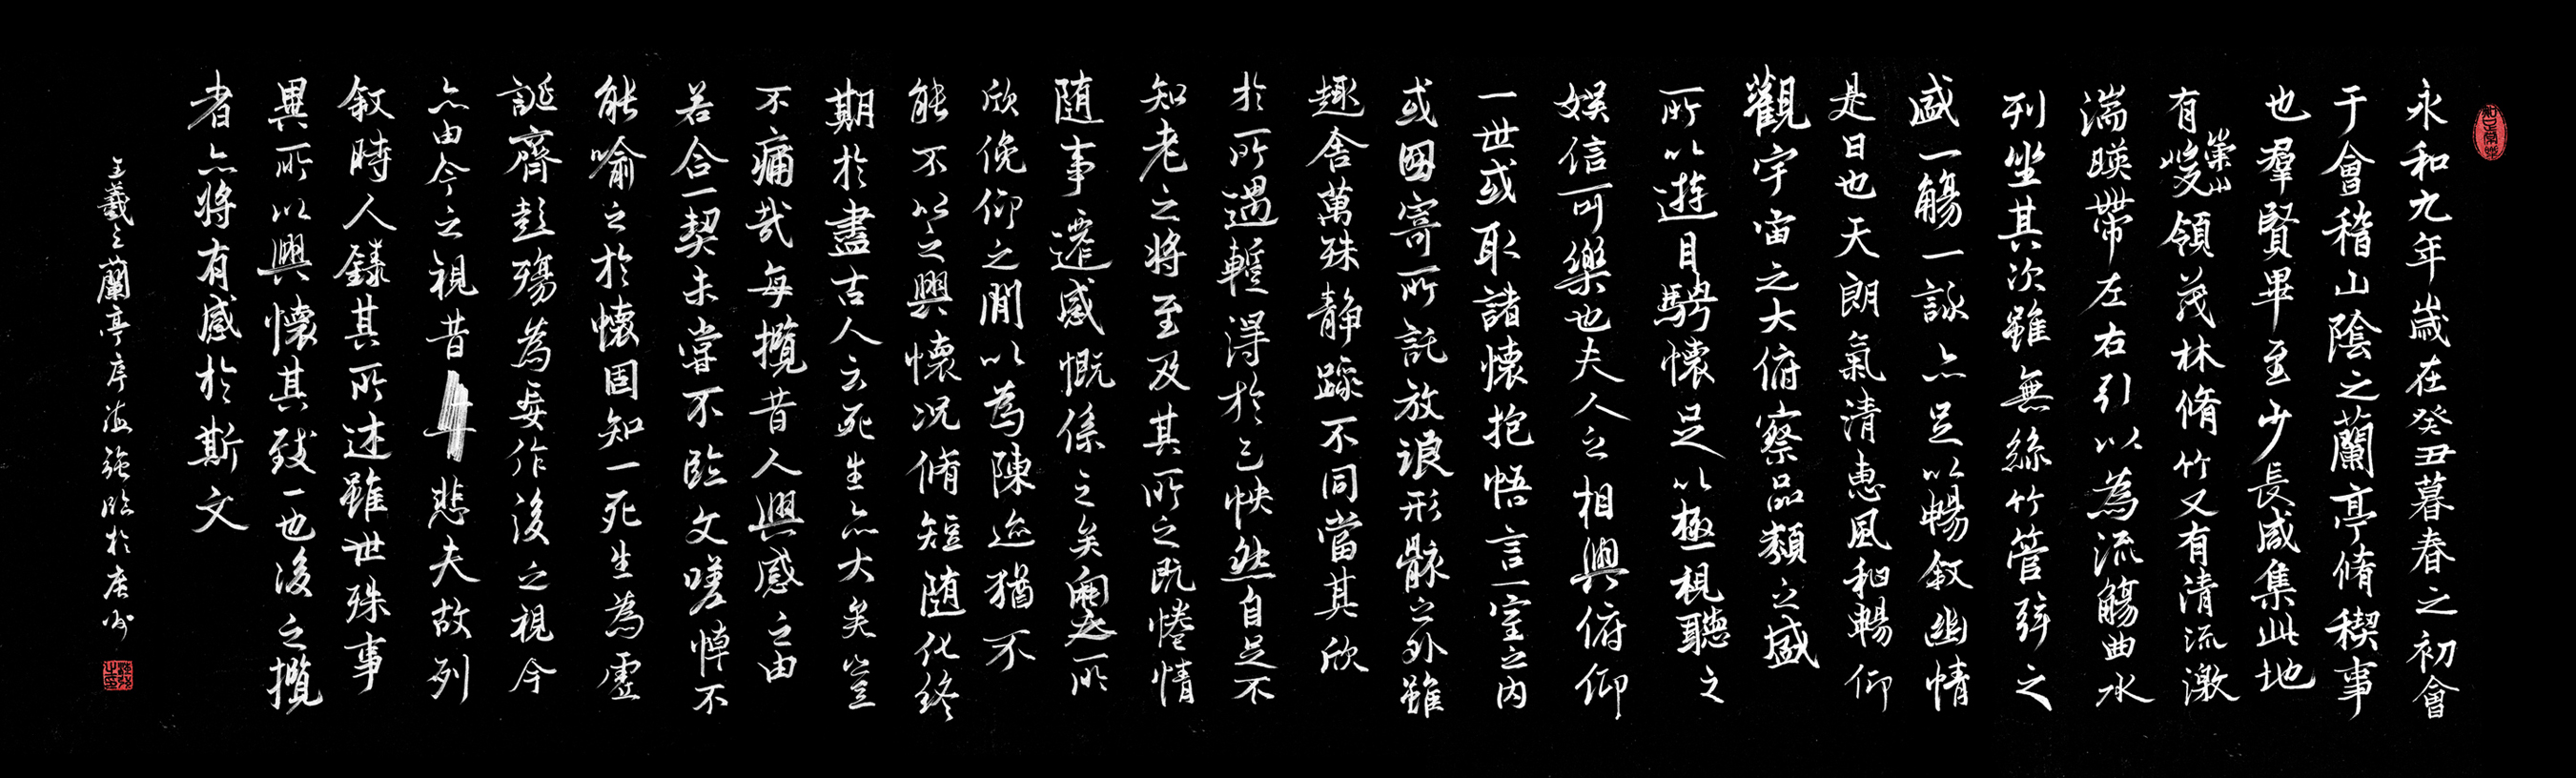 永和九年歲在癸丑暮春之初會
于會稽山陰之蘭亭脩稧事
也羣賢畢至少長咸集此地
有崇山峻領茂林脩竹又有清流激
湍暎帶左右引以為流觴曲水
列坐其次雖無絲竹管弦之
盛一觴一詠亦足以暢敘幽情
是日也天朗氣清惠風和暢仰
觀宇宙之大俯察品類之盛
所以遊目騁懷足以極視聽之
娛信可樂也夫人之相與俯仰
一世或取諸懷抱悟言一室之內
或因寄所託放浪形骸之外雖
趣舍萬殊靜躁不同當其欣
於所遇蹔得於己怏然自足不
知老之將至及其所之既惓情
隨事遷感慨係之矣向之所
欣俛仰之間以為陳迹猶不
能不以之興懷況脩短隨化終
期於盡古人云死生亦大矣豈
不痛哉每攬昔人興感之由
若合一契未嘗不臨文嗟悼不
能喻之於懷固知一死生為虛
誕齊彭殤為妄作後之視今
亦由今之視昔悲夫故列
敘時人錄其所述雖世殊事
異所以興懷其致一也後之攬
者亦將有感於斯文
王羲之蘭亭序海強臨於